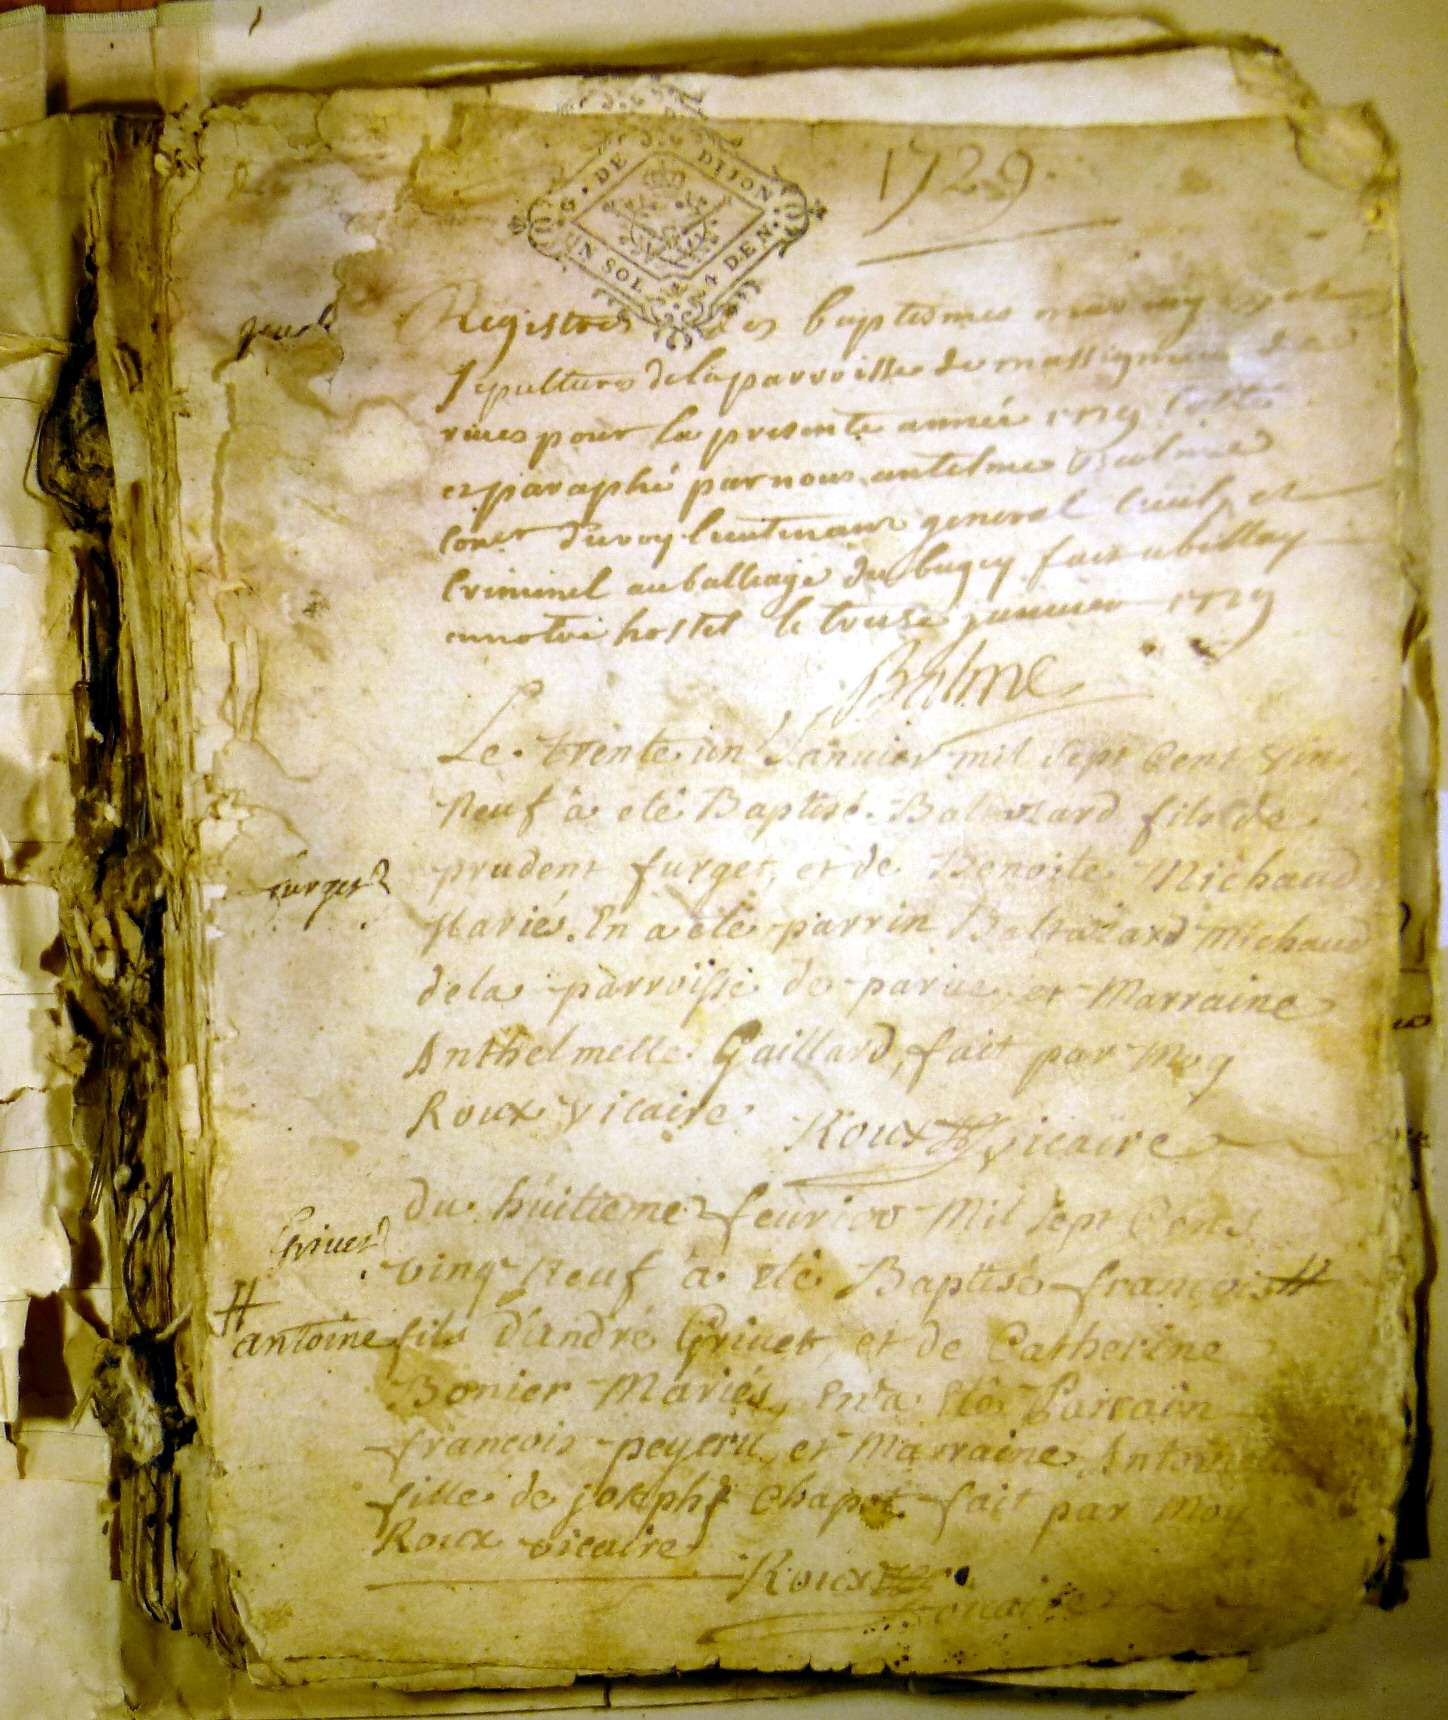 G. DE DIJON
UN SOL 4 DEN.
1729.
Registres des baptesmes mariages et
sepultures de la parroisse de massignieu de
rives pour la presente année 1729 Cotté
et paraphé par nous antelme Balme
Coner du roy lieutenant general Civil et
Criminel au balliage du bugey fait a belley
en notre hostel le treise janvier 1729
Balme
Le trente un Janvier mil sept Cent vin
Neuf à eté Baptisé Baltazard fils de
furget
prudent furget, et de Benoite Michaud
Mariés. En a eté parrin Baltazard Michaud
de la parroisse de parve et Marraine
Anthelmette Gaillard, fait par Moy
Roux vicaire Roux vicaire
du huitieme fevrier Mil sept Cens
Grivet
vinq Neuf à eté Baptisé francois #
#
antoine fils d'andré Grivet et de Catherine
Bonier Mariés, en a eté Parrain
francois peyeru, et Marraine
fille de joseph Chapot fait par Moy
Roux vicaire
Roux
vicaire